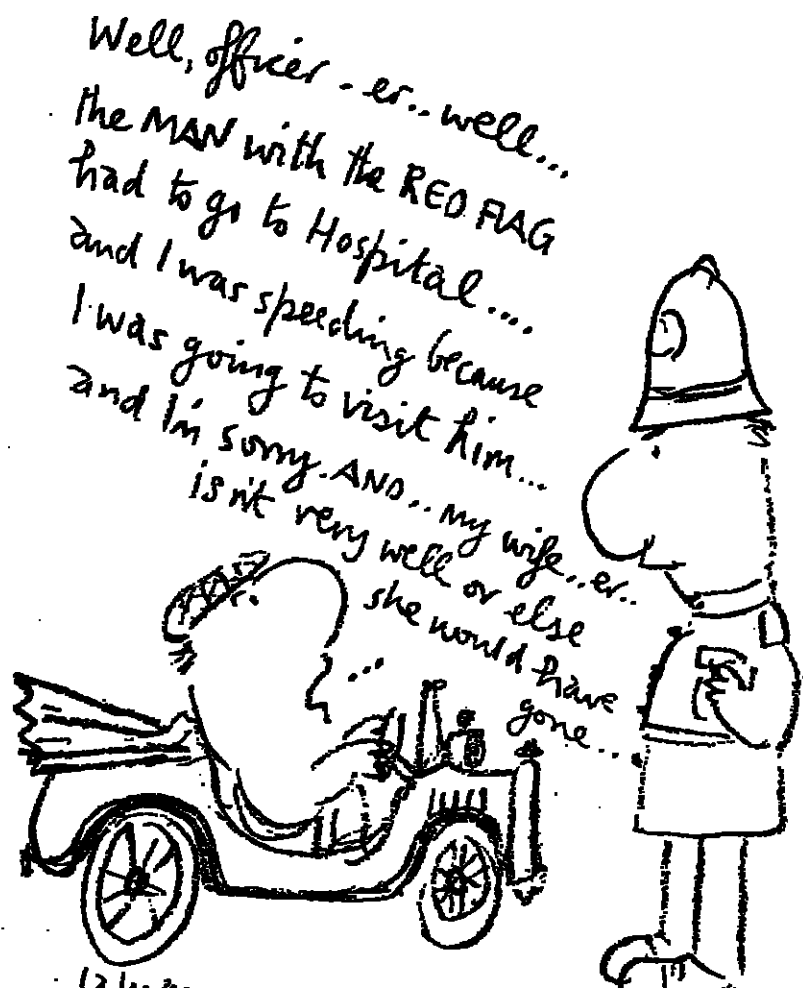 Well, officer .. er.. well...
the MAN with the RED FLAG
had to go to Hospital....
and I was speeding because
I was going to visit him...
and I'm sorry. AND.. my wife..er..
isn't very well or else
she would have
gone...
...